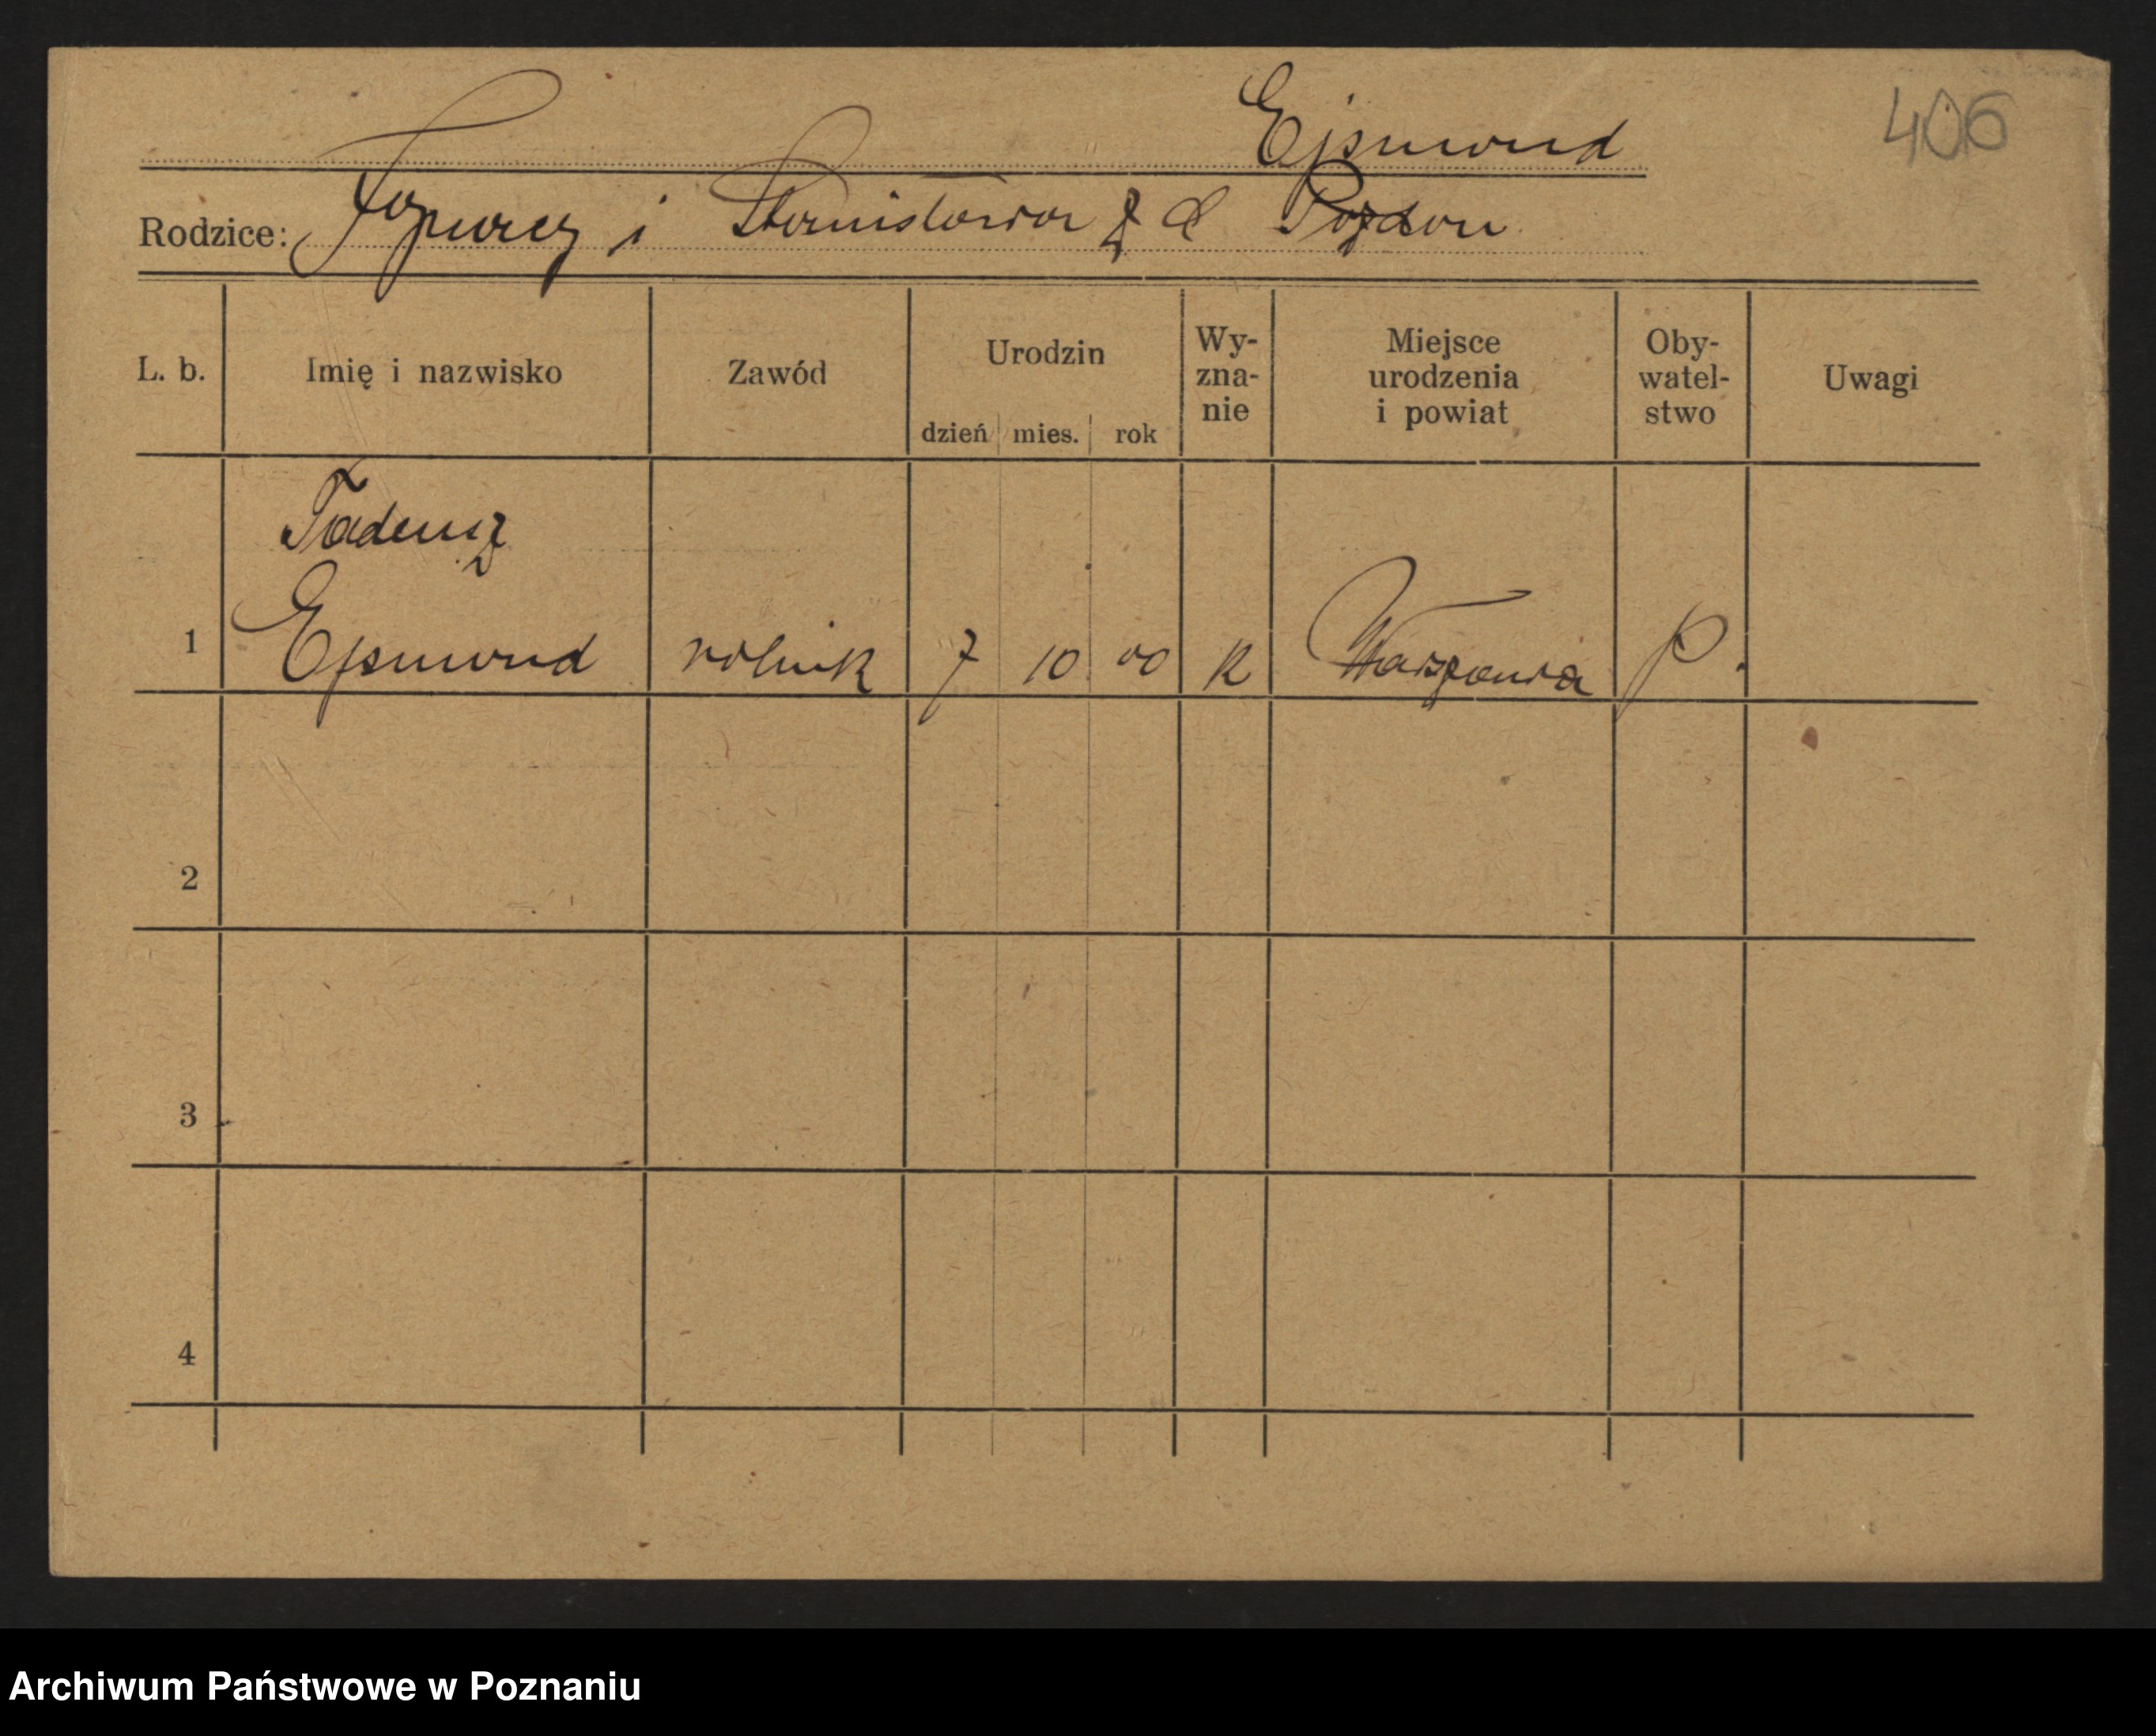 Ejsmond
406
Rodzice: i Stanisława z d
L. b.
Imię i nazwisko
Zawód
Urodzin
dzień mies. rok
Wy-
zna-
nie
Miejsce
urodzenia
i powiat
Oby-
watel-
stwo
Uwagi
Tadeusz
1 Ejsmond rolnik 7 10 00 K Warszawa P.
2
3
4
Archiwum Państwowe w Poznaniu